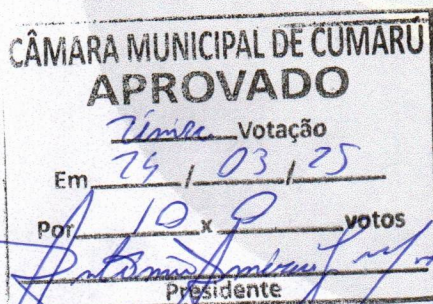 CÂMARA MUNICIPAL DE CUMARÚ
APROVADO
Única Votação
Em 24 / 03 / 25
Por 10 x 0 votos
Presidente